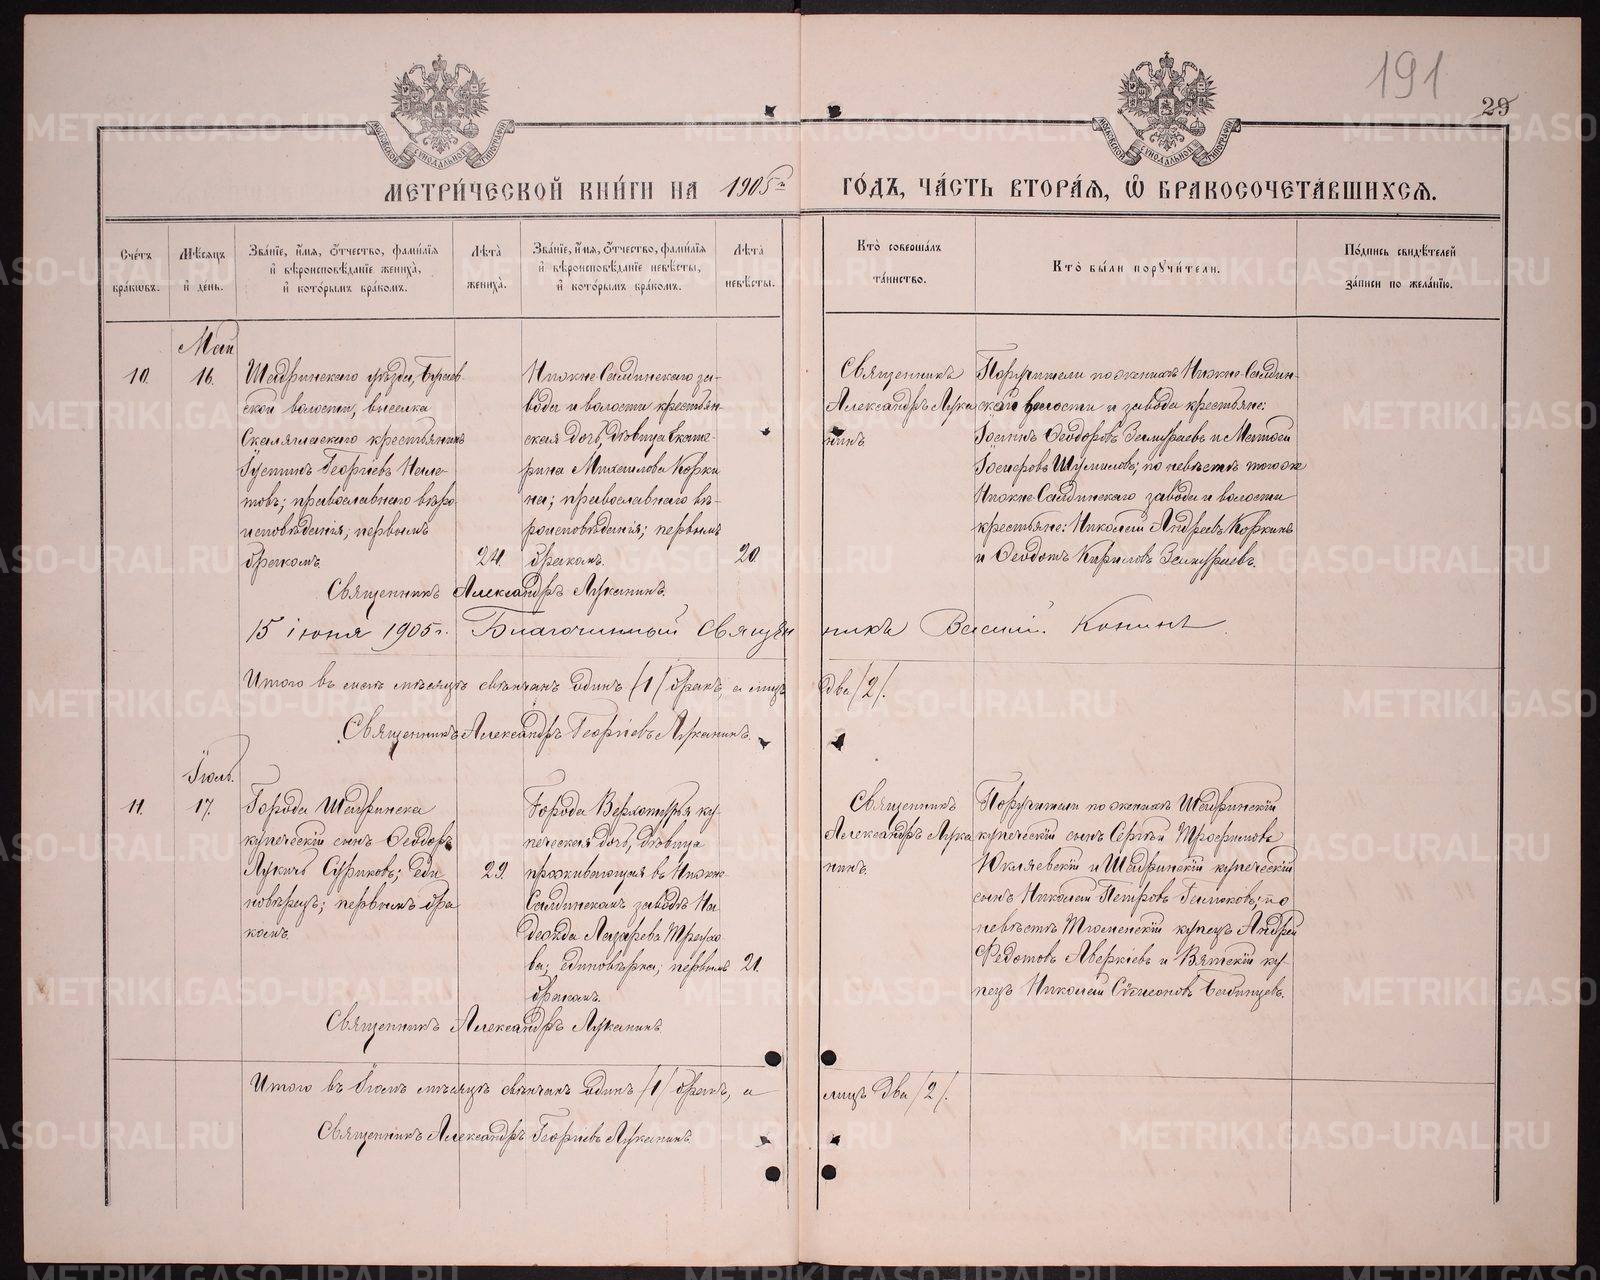 191
29
МОСКОВСКОЙ СѴНОДАЛЬНОЙ ТИПОГРАФІИ
МОСКОВСКОЙ СѴНОДАЛЬНОЙ ТИПОГРАФІИ
МЕТРИ́ЧЕСКОЙ КНИ́ГИ НА 1905й ГО́ДЪ, ЧА́СТЬ ВТОРА́Я, Ѡ БРАКОСОЧЕТА́ВШИХСЯ.
Сче́тъ бра́ковъ.
Мѣ́сяцъ и҆ день.
Зва́нїе, и҆́мя, ѻ҆́тчество, фами́лїя и҆ вѣроисповѣ́данїе жениха̀, и҆ кото́рымъ бра́комъ.
Лѣ́та жениха̀.
Зва́нїе, и҆́мя, ѻ҆́тчество, фами́лїя и҆ вѣроисповѣ́данїе невѣ́сты, и҆ кото́рымъ бра́комъ.
Лѣ́та невѣ́сты.
Кто̀ соверша́лъ та́инство.
Кто̀ бы́ли порꙋчи́тели.
По́дпись свидѣ́телей за́писи по жела́нїю.
Май
10.
16.
Шадринскаго уѣзда,
ской волости, выселка
крестьянинъ
Іустинъ Георгіевъ
товъ; православнаго вѣро
исповѣданія; первымъ
бракомъ.
24.
Нижне-Салдинскаго за-
вода и волости крестьян-
ская дочь, дѣвица Екате-
рина Михаилова Корки
на; православнаго вѣ-
роисповѣданія; первымъ
бракомъ.
20.
Священникъ
Александръ Лука
нинъ
Поручители по женихѣ Нижне-Салдин-
ской волости и завода крестьяне:
Іоаннъ Ѳеодоровъ Замураевъ и Матѳей
Шумиловъ; по невѣстѣ того же
Нижне-Салдинскаго завода и волости
крестьяне: Николай Андреевъ Коркинъ
и Ѳеодотъ Кириловъ Замураевъ.
Священникъ Александръ Луканинъ.
15 іюня 1905 г. Благочинный Священникъ Василій Конинъ
Итого въ маѣ мѣсяцѣ вѣнчанъ одинъ /1/ бракъ, а лицъ два /2/.
Священникъ Александръ Георгіевъ Луканинъ.
Іюль.
11.
17.
Города Шадринска
купеческій сынъ Ѳеодоръ
Лукичъ Суриковъ; еди
новѣрецъ; первымъ бра
комъ.
29.
Города Верхотурья ку-
печеская дочь, дѣвица
проживающая въ Нижне-
Салдинскомъ заводѣ На
дежда Лазарева Треухо
ва; единовѣрка; первымъ
бракомъ.
21.
Священникъ
Александръ Лука
нинъ.
Поручители по женихѣ Шадринскій
купеческій сынъ Сергѣй Трофимовъ
и Шадринскій купеческій
сынъ Николай Петровъ; по
невѣстѣ Тюменскій купецъ Андрей
Федотовъ Аверкіевъ и Вятскій ку-
пецъ Николай Сѵмеоновъ
Священникъ Александръ Луканинъ
Итого въ Іюлѣ мѣсяцѣ вѣнчанъ одинъ /1/ бракъ, а лицъ два /2/.
Священникъ Александръ Георгіевъ Луканинъ.
METRIKI.GASO-URAL.RU